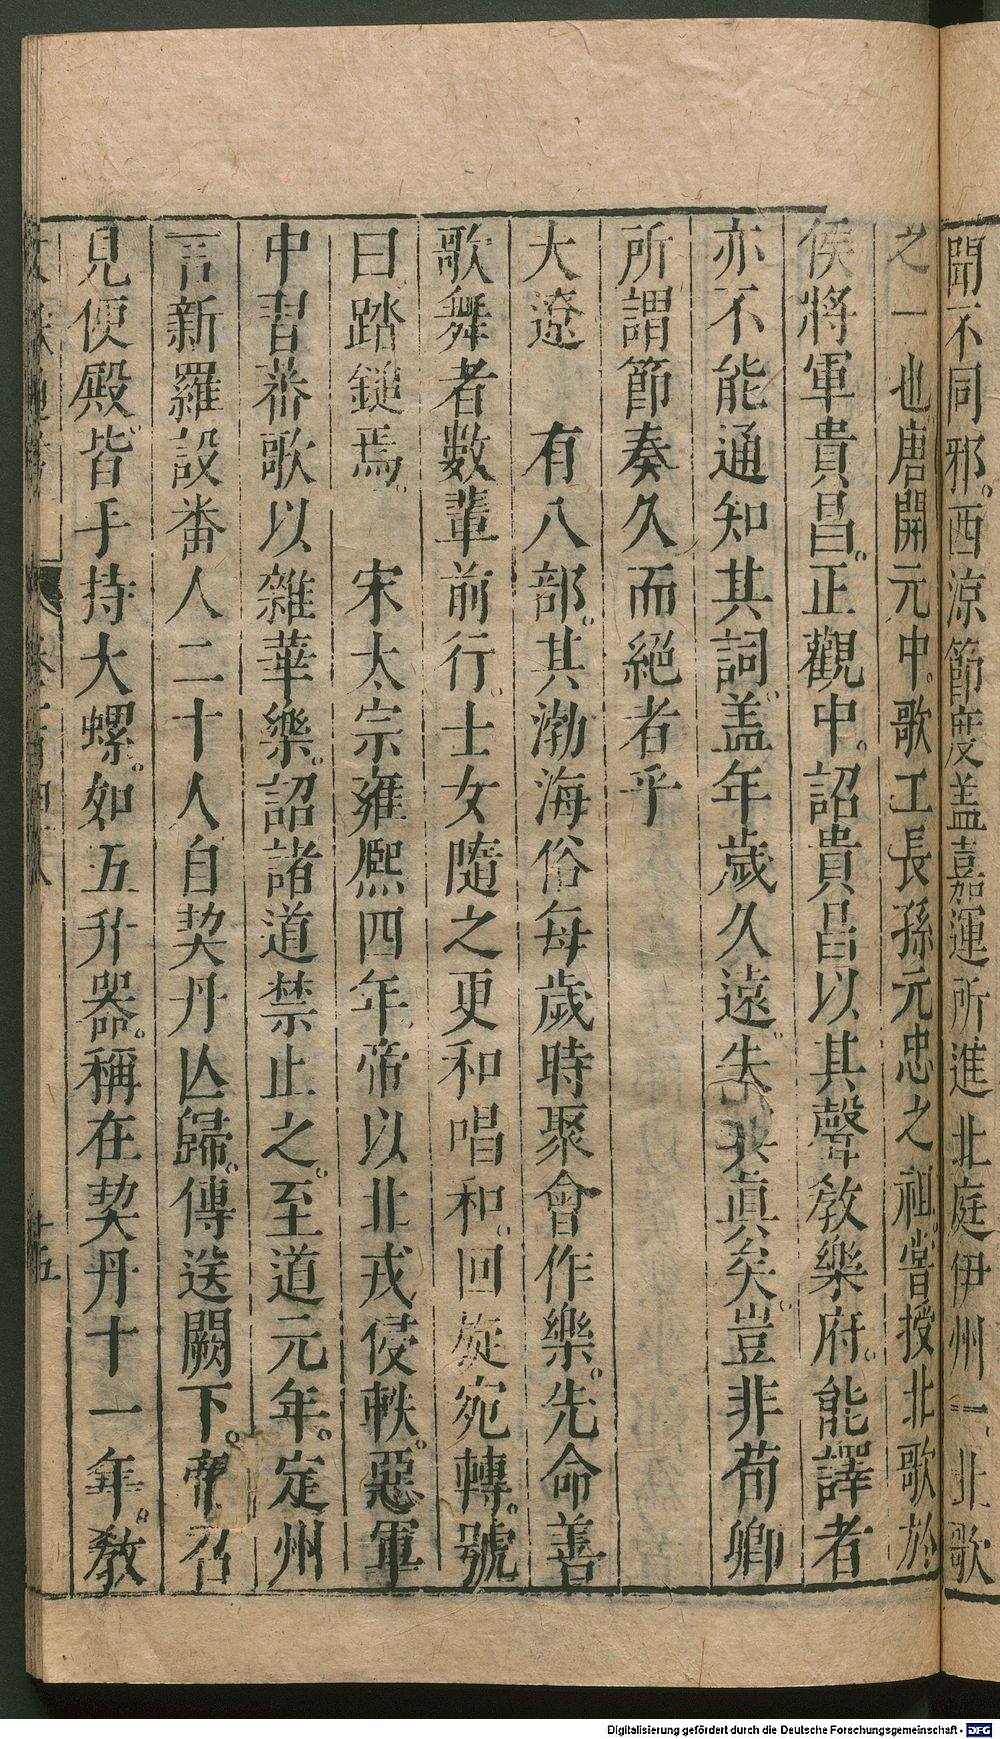 聞不同邪。西涼節度盖嘉運所進北庭伊州一、北歌
之一也唐開元中。歌工長孫元忠之祖。嘗授北歌於
侯將軍貴昌。正觀中。詔貴昌以其聲教樂府。能譯者
亦不能通知其詞。盖年歲久遠。失其眞矣。豈非荀卿
所謂節奏久而絕者乎
大遼　有八部。其渤海俗每歲時聚會作樂。先命善
歌舞者數輩前行。士女隨之更和唱和。回旋宛轉。號
曰踏鎚焉。　宋太宗雍熙四年。帝以北戎侵軼。惡軍
中習蕃歌以雜華樂。詔諸道禁止之。至道元年。定州
言新羅設番人二十人自契丹亾歸。傳送闕下。帝召
見便殿。皆手持大螺。如五升器。稱在契丹十一年。教
十五
Digitalisierung gefördert durch die Deutsche Forschungsgemeinschaft - DFG